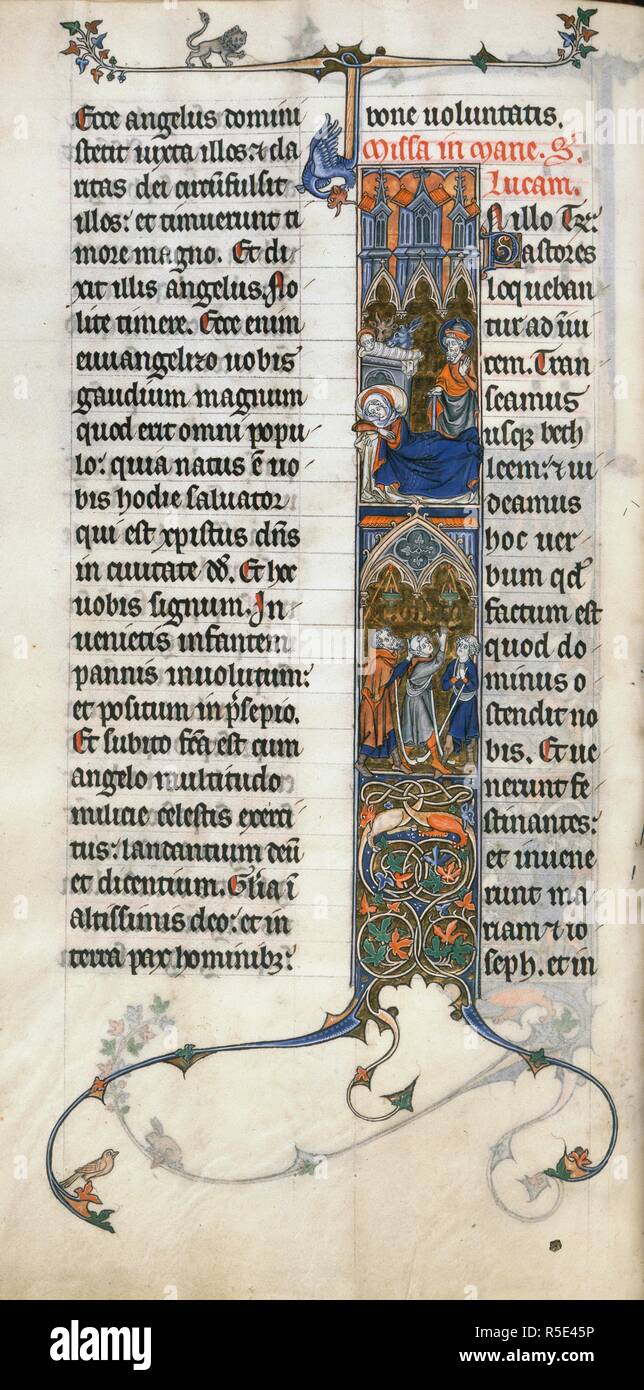 Ecce angelus domini
stetit iuxta illos: ⁊ cla
ritas dei circũfulsit
illos: et timuerunt ti
more magno. Et di
xit illis angelus. No
lite timere. Ecce enim
euuangelizo uobis
gaudium magnum
quod erit omni popu
lo: quia natus ē uo
bis hodie saluator
qui est xpistus dñs
in ciuitate dd̄. Et hoc
uobis signum. In
uenietis infantem
pannis inuolutum:
et positum in p̄sepio.
Et subito fc̄a est cum
angelo multitudo
milicie celestis exerci
tus: laudantium deū
et dicentium. Gl̃ia ī
altissimis deo: et in
terra pax hominibꝫ:
bone uoluntatis.
Missa in mane. S.
Lucam.
N illo Tꝛe:
Pastores
loqueban
tur ad īui
cem. Tran
seamus
usqꝫ beth
leem: ⁊ ui
deamus
hoc uer
bum qđ
factum est
quod do
minus o
stendit no
bis. Et ue
nerunt fe
stinantes:
et inuene
runt ma
riam ⁊ io
seph. et in
alamy
Image ID: R5E45P
www.alamy.com